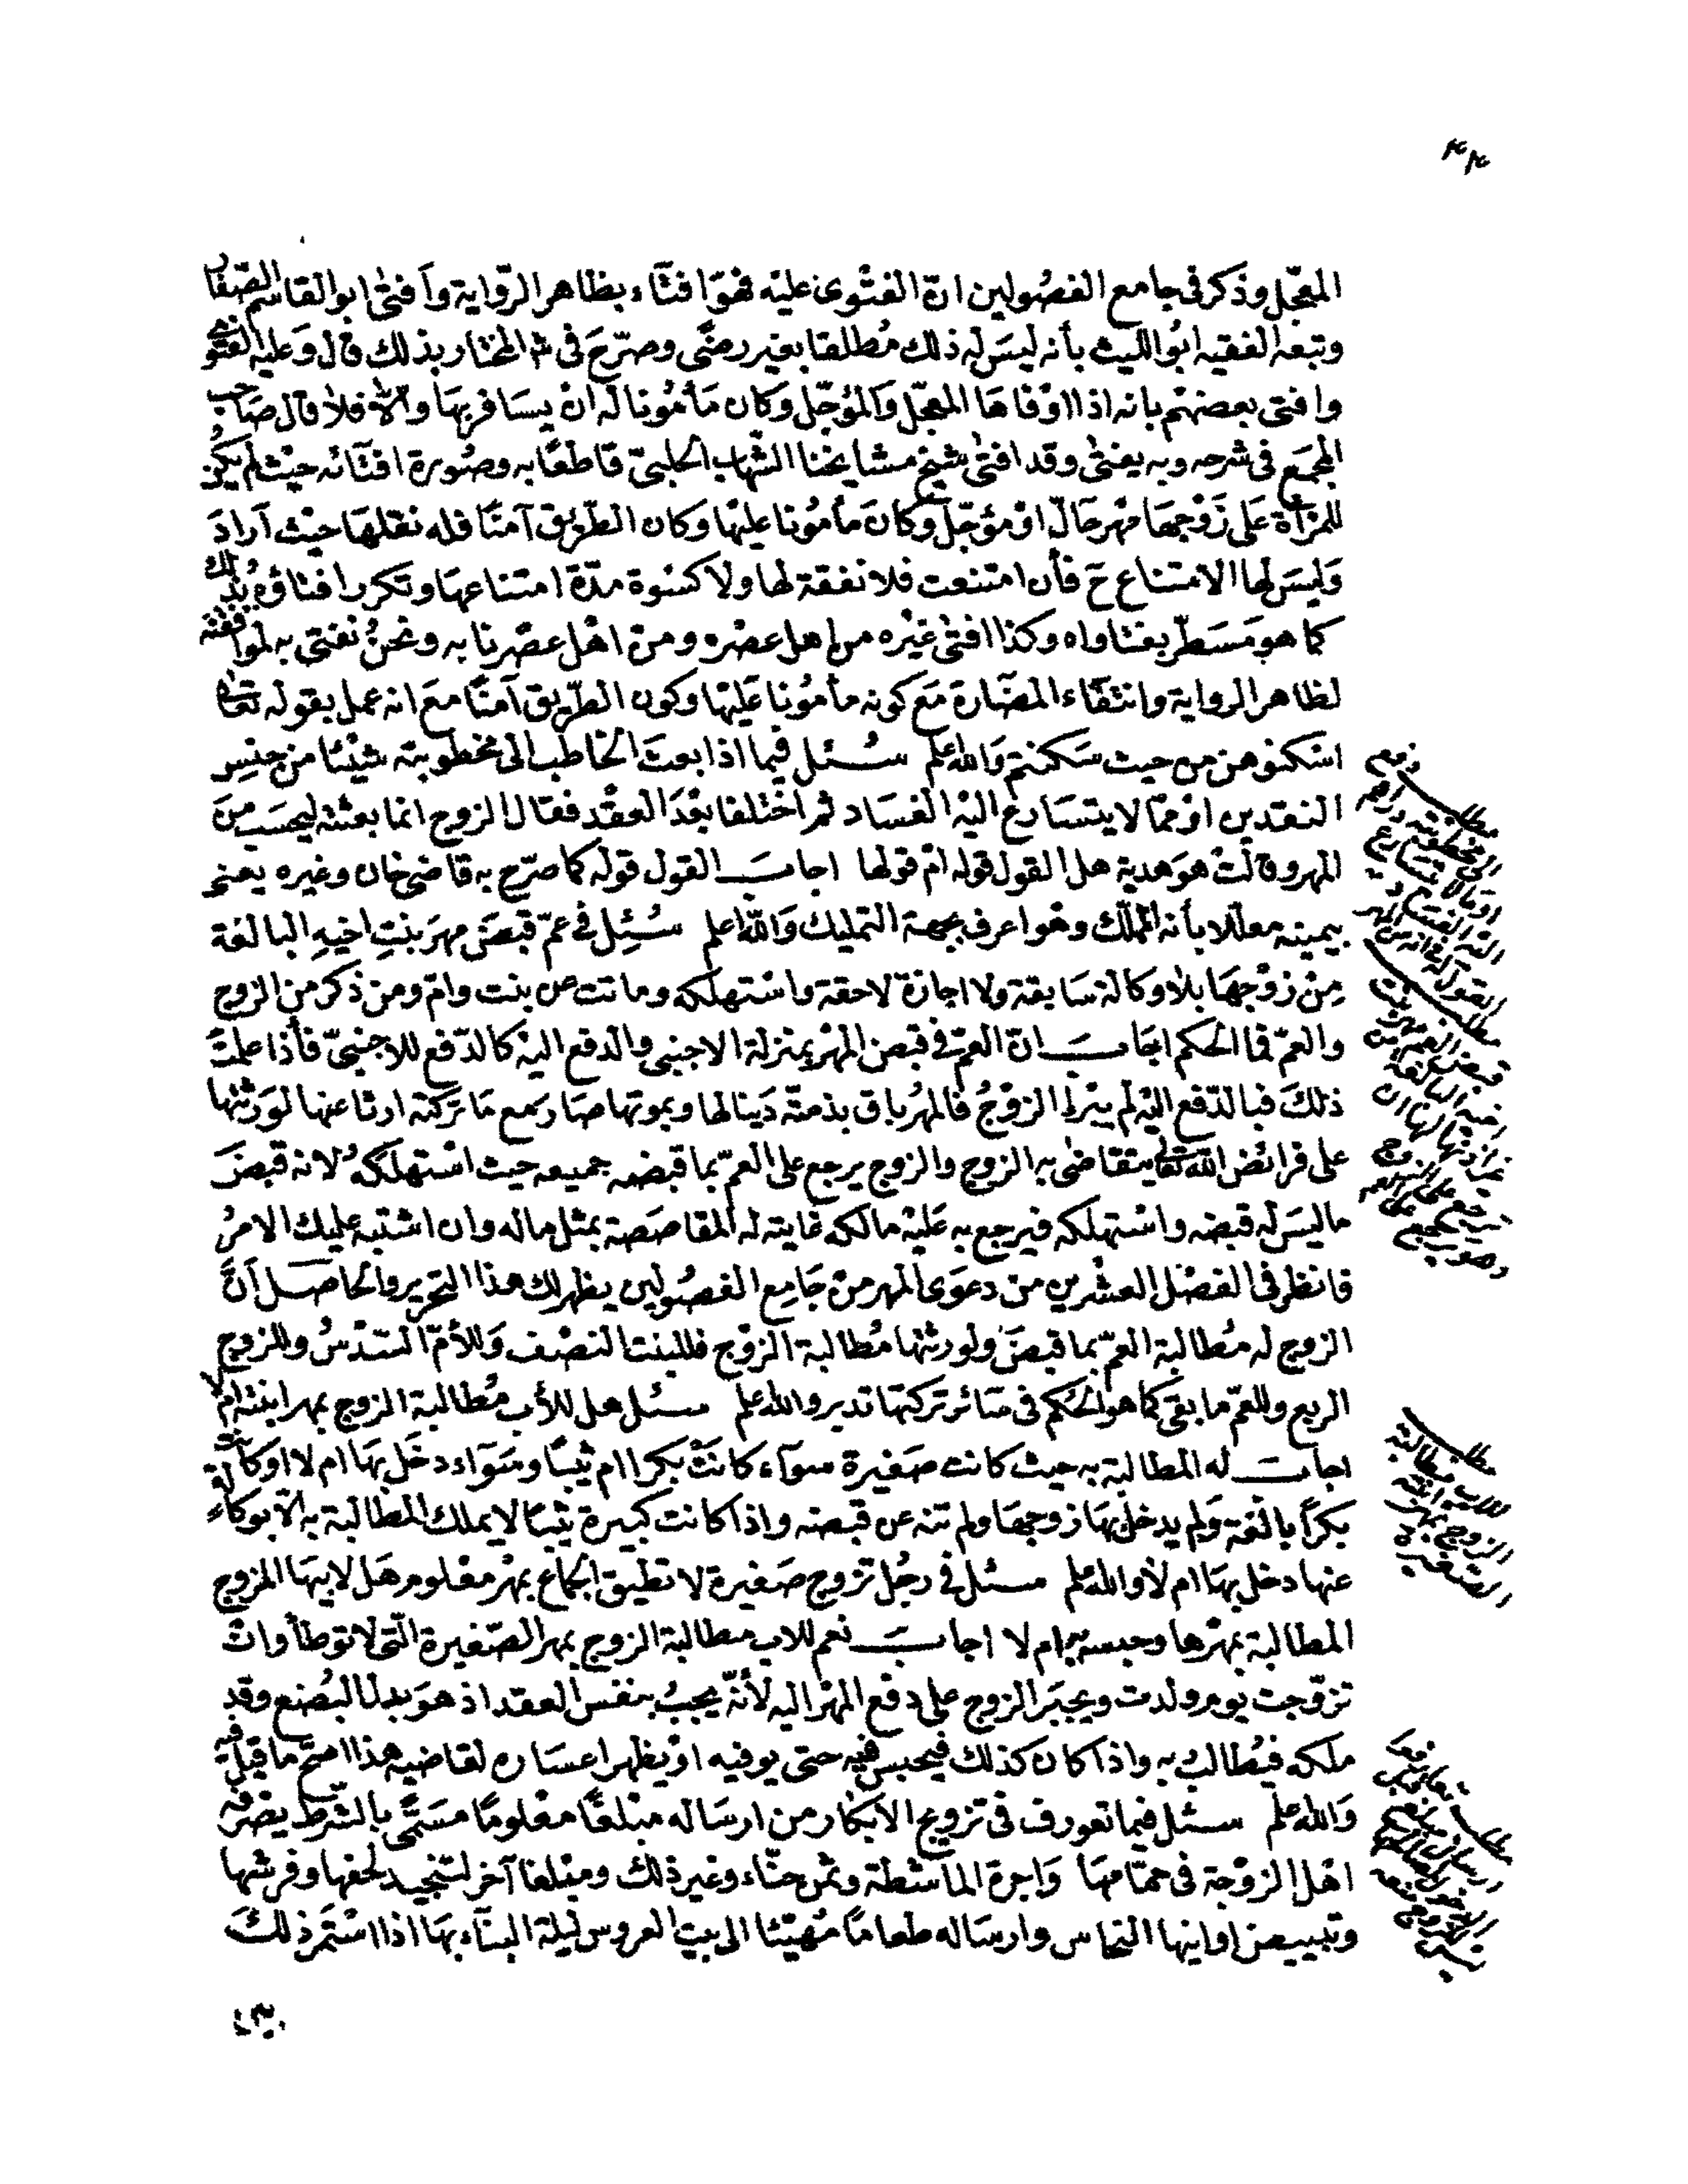 ٤٤
المعجّل وذكر فى جامع الفصُولين انّ الفتْوى عليْه فهوَ افتآء بظاهر الرّواية وَأفتىٰ ابو القاسم الصّفار
وتبعه الفقيه ابُو الليث بأنه ليسَ له ذلك مُطلقا بغير رضًى وصرّحَ فى المختار بذلك قال وَعليه الفتوى
وافتى بعضهُم بانه اذا اوْفاها المعجّل وَالمؤجّل وكان مَأمُونا له انْ يسَافر بهَا والّا فلا قال صَاحب
المجمَع فى شرحه وبه يفتىٰ وقد افتىٰ شيخ مشايخنا الشّهاب الحلبىّ قاطعًا به وصُورة افتآئه حيْث لم يكن
للمرْأة عَلى زَوْجهَا مهْر حَالّ اوْ مؤجّل وكانَ مَأمُونا عليْها وكان الطّريْق آمنًا فله نقلهَا حيْث أرادَ
وَليسَ لها الامتناع حَ فأن امتنعت فلا نفقة لها ولا كسْوة مدّة امتناعهَا وتكرر افتاؤه بذلك
كما هو مسَطرّ بفتاواه وكذا افتىٰ غيْره من اهل عصْره ومنْ اهْل عصْرنا به ونحنُ نفتى به لموافقته
لظاهر الرواية وانتفآء المضآرة مَع كونه مأمُونا عَليْها وكون الطّريق آمنًا معَ انه عمل بقوله تعَالى
اسْكنوهن من حيث سَكنتم وَالله اعلم سُئل فيما اذا بعث الخاطب الى مخطوبته شيْئا من جنسِ
النقدين اوْ ممّا لا يتسَارع اليْه الفسَاد ثم اختلفا بعْدَ العقْد فقال الزوج انما بعثته ليحسَب منَ
المهر وقالتْ هوَ هدية هل القول قوله امْ قولها اجابَ القول قوله كما صرّح به قاضى خان وغيره يعنى
بيمينه معللا بأنه المملّك وهُوَ اعرف بجهة التمليك وَاللّه اعلم سُئِل فى عمّ قبضَ مهرَ بنتِ اخيهِ البالغة
مِنْ زوْجهَا بلا وكالة سَابقة ولا اجازة لاحقة واسْتهلكه وماتت عن بنت وامّ ومن ذكر من الزوج
والعمّ فما الحكم اجَابَ انّ العمّ فى قبض المهْر بمنزلة الاجنبى والدفع اليْه كالدّفع للاجنبىّ فأذا علمتَ
ذلكَ فبالدّفع اليْه لم يبْرا الزوْجُ فالمهْر باق بذمتّه دَينا لها وبموتها صَار مع مَا تركته ارثا عنها لوَرثتها
على فرائض اللّه تعالى يتقاضىٰ به الزوج والزوج يرجع على العمّ بما قبضه جميعه حيث اسْتهلكهُ لانه قبضَ
ما ليسَ له قبضه واسْتهلكه فيرجع به عَليْه مالكه غايته له المقاصَصة بمثل ماله وان اشتبه عليك الامرُ
فانظر فى الفصْل العشْرين من دعوَى المهر منْ جَامِع الفصُولين يظهر لك هذا التحرير والحَاصل أنَّ
الزوج له مُطالبة العمّ بما قبضَ ولورثتها مُطالبة الزوْج فللبنت النصْف وَللأمّ السّدْسُ وللزوج
الربع وللعمّ ما بقى كما هو الحُكم فى سَائر تركتها تدبر والله اعلم سئل هل للأب مُطالبة الزوج بمهر ابنته ام لا
اجابَ له المطالبة به حيث كانت صَغيرة سوآء كانتْ بكرا ام ثيّبًا وسَوآء دخَل بهَا ام لا او كانت
بكرًا بالغة وَلم يدخل بهَا زوجهَا ولم تنه عن قبضه واذا كانت كبيرة ثيّبًا لا يملك المطالبة به الّا بوكالة
عنها دخل بهَا ام لا والله اعلم سئل فى رجُل تزوج صَغيرة لا تطيق الجماع بمهْر معْلوم هَل لابيهَا المزوج
المطالبة بمهْرها وحبسه به ام لا اجابَ نعم للاب مطالبة الزوج بمهر الصّغيرة التّى لا توطأ وان
تزوّجت يوم ولدت ويجبَر الزوج على دفع المهْر اليه لأنّه يجبُ بنفس العقد اذ هوَ بدل البُضع وقد
ملكه فيُطالبُ به واذا كان كذلك فيحبس فيه حتى يوفيه اوْ يظهر اعسَاره لقاضيه هذا اصحّ ما قيل فيه
وَالله اعلم سئل فيما تعورف فى تزويج الابكار من ارسَاله مبْلغًا معْلومًا مسَمّى بالشّرط يصرفه
اهْل الزوْجة فى حمّامهَا وَاجرة الماشطة وثمن حنّاء وغيرذلك ومبْلغا آخر لتنجيد لحفها وفرشها
وتبييض اوانيها النحاس وارسَاله طعامًا مُهيّئا الى بيت العروس ليلة البنآء بهَا اذا اسْتمرّ ذلكَ